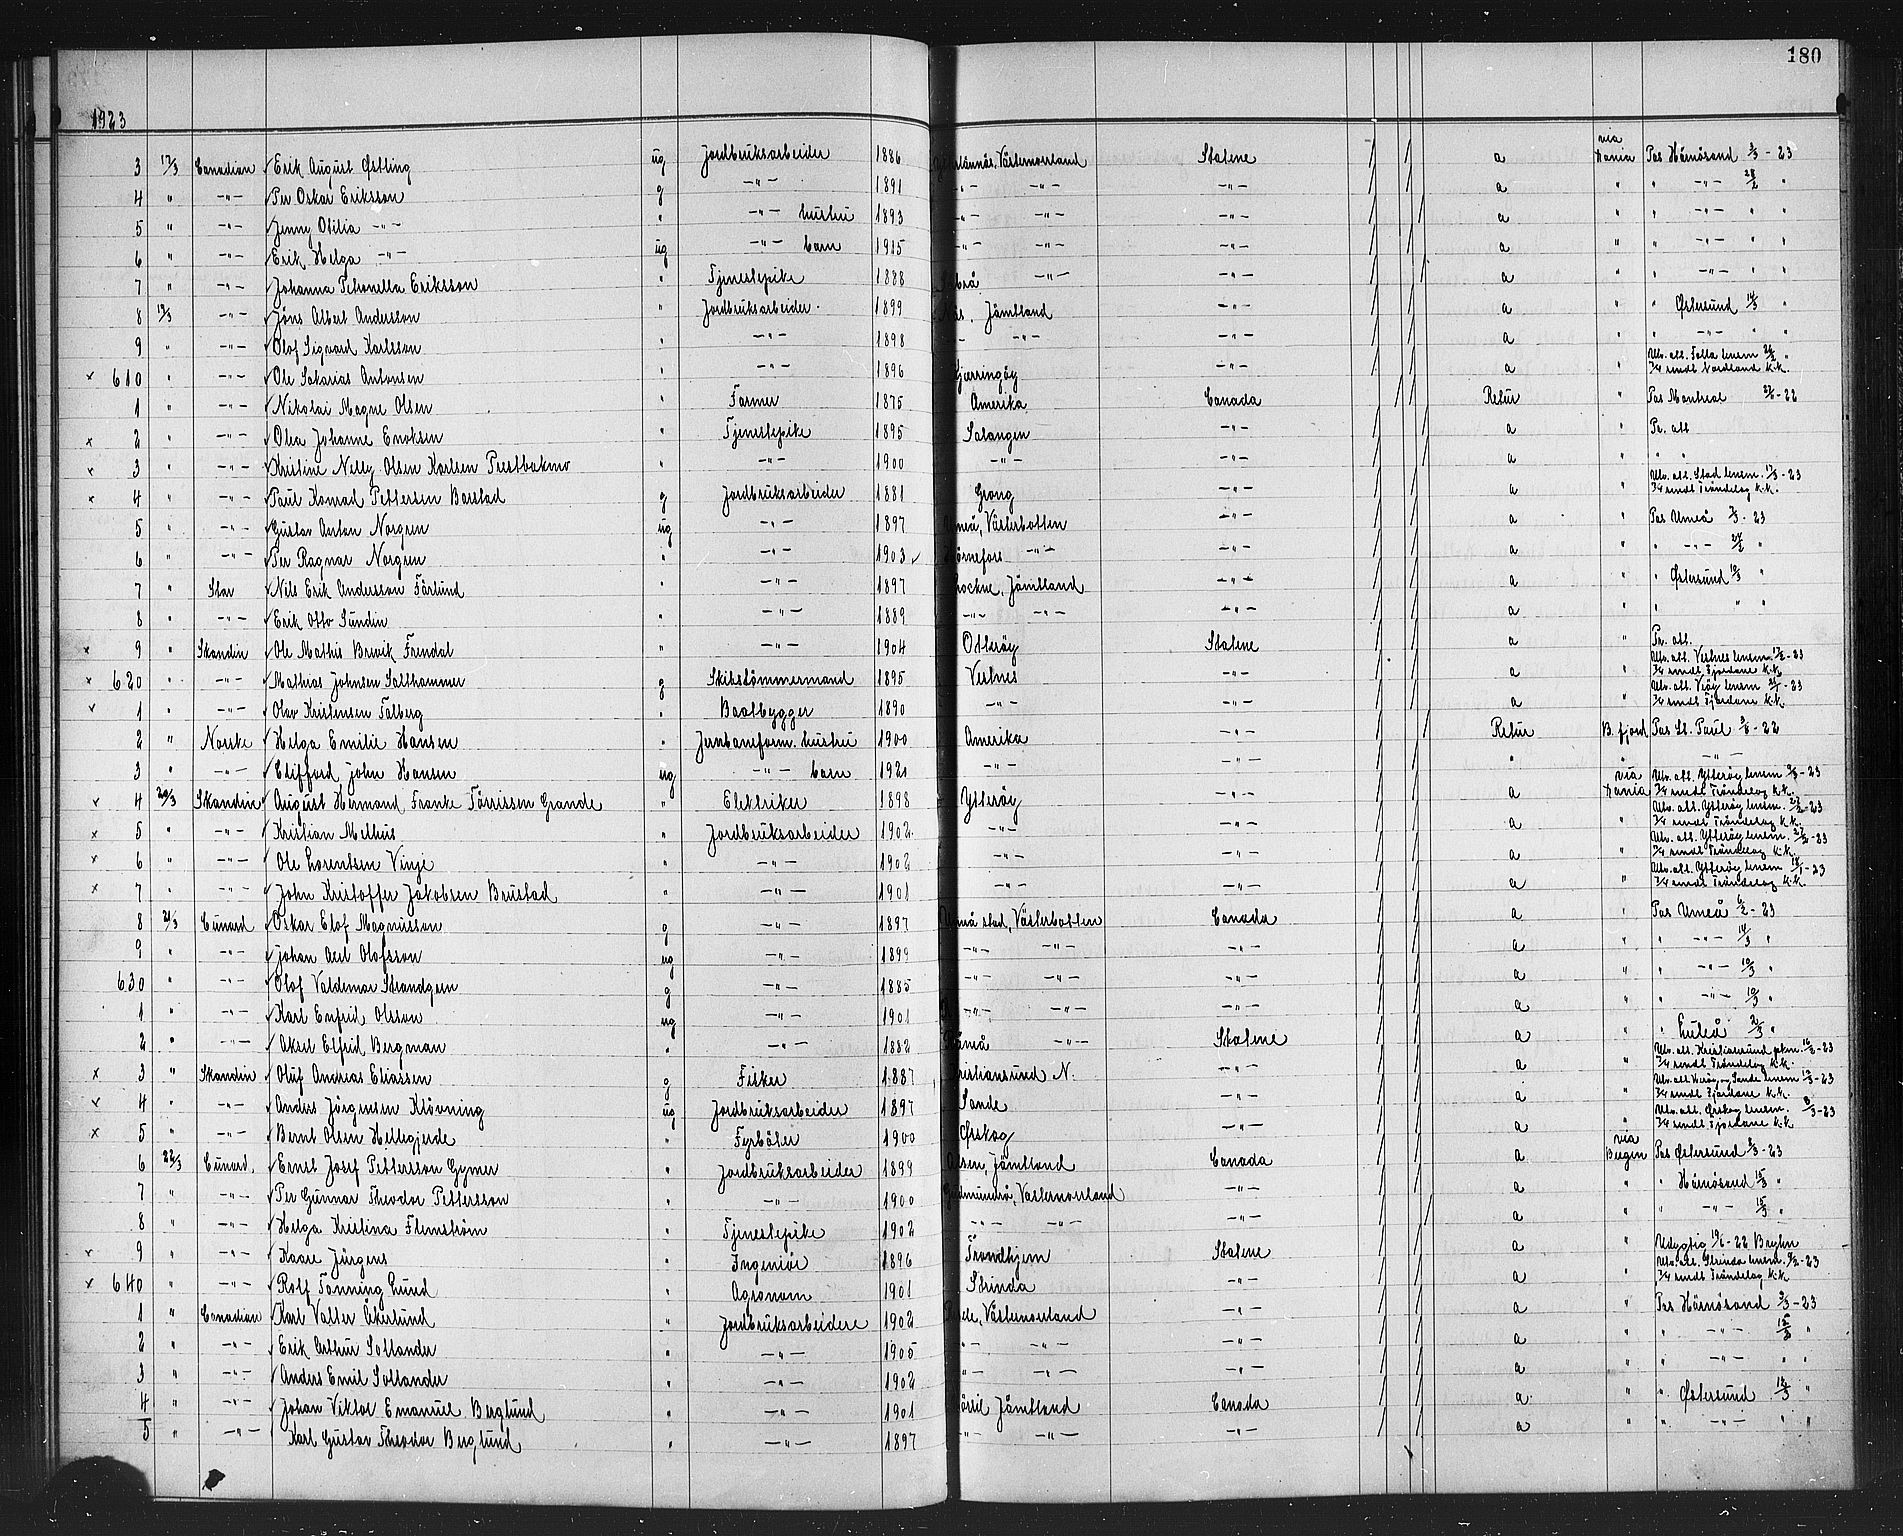 180
1923
3 17/3 Canadian Erik August Østling ug Jordbruksarbeider 1886 Västernorrland Statene a via Dania Pas Härnösand 3/3 - 23
4 " -"- Per Oskar Eriksson g -"- 1891 -"- -"- -"- a " " -"- 28/2 "
5 " -"- Jenny Otilia -"- " -"- hustru 1893 -"- -"- -"- a " " -"- " "
6 " -"- Erik Helga -"- ug -"- barn 1915 -"- -"- -"- a " " -"- " "
7 " -"- Johanna Petronella Eriksson " Tjenestepike 1888 -"- -"- a " " -"- " "
8 19/3 -"- Jöns Albert Andersson " Jordbruksarbeider 1899 Jämtland -"- a " " Østersund 14/3 "
9 " -"- Olof Sigvard Karlsson " -"- 1898 -"- -"- a " " -"- " "
x 610 " -"- Ole Sakarias Antonsen " -"- 1896 Kjerringöy -"- a Utv. att. Folla lensm 24/2 "
3/4 rundt Nordland K.K.
1 " -"- Nikolai Magne Olsen " Farmer 1875 Amerika Canada Retur " Pas Montreal - 22
x 2 " -"- Olea Johanne Enoksen " Tjenestepike 1895 Salangen -"- a " Pr. att
x 3 " -"- Kristine Nelly Olsen Karlsen Prestbakmo " -"- 1900 -"- -"- a " " "
x 4 " -"- Paul Konrad Pettersen Barstad g Jordbruksarbeider 1881 Grong -"- a Utv. att. Stod lensm. 17/3 - 23
3/4 rundt Tröndelag K.K.
5 " -"- Gustav Anton Norgren ug -"- 1897 Umeå, Västerbotten -"- a " Pas Umeå 2/3 - 23
6 " -"- Per Ragnar Norgren " -"- 1903 Hörnefors -"- -"- a " " -"- 24/2 "
7 " Star Nils Erik Andersson Färlund " -"- 1897 Lockne, Jämtland -"- a " " Østersund 10/3 "
8 " -"- Erik Otto Sundin " -"- 1889 -"- -"- -"- a " " " "
x 9 " Skandin Ole Mathis Brevik Frendal " -"- 1904 Otteröy Statene a " Pr. att.
x 620 " -"- Mathias Johnsen Salthammer g Skibstömmermand 1895 Vestnes -"- a " Utv. att. Vestnes lensm. 17/3 - 23
3/4 rundt Fjordane K.K.
1 " -"- Olav Kristensen Talberg " Baatbygger 1890 -"- -"- a " Utv. att. Veöy lensm - 23
3/4 rundt Fjordane K.K.
2 " Norske Helga Emilie Hansen " Jernbaneform. hustru 1900 Amerika -"- Retur B.fjord Pas St. Paul - 22
3 " -"- Clifford John Hansen ug -"- barn 1921 -"- -"- " " -"-
x 4 20/3 Skandin August Hermand Franke Törrissen Grande " Elektriker 1898 Ytteröy -"- a via Dania Utv. att. Ytteröy lensm - 23
3/4 rundt Tröndelag K.K.
x 5 " -"- Kristian Melhus " Jordbruksarbeider 1902 -"- -"- a Utv. att. Ytteröy lensm. 27/2 - 23
3/4 rundt Tröndelag K.K.
x 6 " -"- Ole Lorentsen Vinje " -"- 1902 -"- -"- a " Utv. att. Ytteröy lensm. 27/2 - 23
3/4 rundt Tröndelag K.K.
x 7 " -"- John Kristoffer Jakobsen Brustad " -"- 1901 -"- -"- a " Utv. att. Ytteröy lensm - 23
3/4 rundt Tröndelag K.K.
8 21/3 Cunard Oskar Elof Magnusson g -"- 1897 Umeå stad, Västerbotten Canada a " Pas Umeå 6/2 - 23
9 " -"- Johan Axel Olofsson ug -"- 1899 -"- -"- -"- a " " -"- 14/3 "
630 " -"- Olof Valdemar Strandgren g -"- 1885 -"- -"- -"- a " " -"- 10/3 "
1 " -"- Karl Enfrid Olsson ug -"- 1901 -"- -"- -"- a " " -"- 10/3 "
2 " -"- Aksel Elfrid Bergman " -"- 1882 Råneå -"- Statene a " " Luleå 2/3 "
x 3 " Skandin Oluf Andreas Eliassen g Fisker 1887 Kristiansund N. -"- a " Utv. att. Kristiansund pkm. 16/3 - 23
3/4 rundt Tröndelag K.K.
x 4 " -"- Anders Jörgensen Klövning ug Jordbruksarbeider 1897 Sande -"- a " Utv. att Heröy og Sande lensm 12/3 - 23
3/4 rundt Fjordane K.K.
x 5 " -"- Bernt Olsen Hellegjerde " Fyrböter 1900 Ørskog -"- a " Utv. att. Ørskog lensm. 8/3 - 23
3/4 rundt Fjordane K.K.
6 22/3 Cunard Ernst Josef Pettersson Gymer " Jordbruksarbeider 1899 Alsen, Jämtland Canada a via Bergen Pas Østersund 3/3 - 23
7 " -"- Per Gunnar Theodor Pettersson " -"- 1900 Gudmundrå, Västernorrland -"- a " " Härnösand 15/3 "
8 " -"- Helga Kristina Flemström " Tjenestepike 1902 -"- -"- -"- a " " -"- 15/3 "
x 9 " -"- Kaare Jürgens " Ingeniör 1896 Trondhjem Statene a " Udygtig 19/6 - 22
x 640 " -"- Rolf Tönning Lund " Agronom 1901 Strinda -"- a " Utv. att. Strinda lensm. - 23
3/4 rundt Tröndelag K.K.
1 " Canadian Karl Valter Åkerlund " Jordbruksarbeidere 1902 Västernorrland -"- a " Pas Härnösand 3/3 - 23
2 " -"- Erik Arthur Sollander " -"- 1905 -"- -"- -"- a " " -"- 15/3 "
3 " -"- Anders Emil Sollander " -"- 1902 -"- -"- -"- a " " -"- " "
4 " -"- Johan Viktor Emanuel Berglund " -"- 1901 Mörsil Jämtland Canada a " " Østersund 12/3 "
5 " -"- Karl Gustav Theodor Berglund " -"- 1897 -"- -"- -"- a " " -"- " "